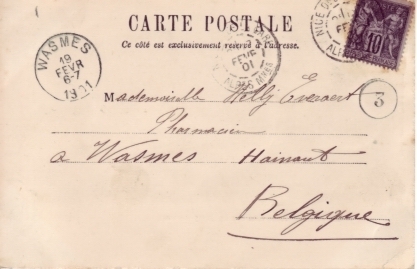 CARTE POSTALE
Ce côté est exclusivement réservé à l'adresse.
WASMES
19
FEVR
6-7
1901
FEVR
01
10
3
Mademoiselle Nelly Everaert
Pharmacien
à Wasmes Hainaut
Belgique